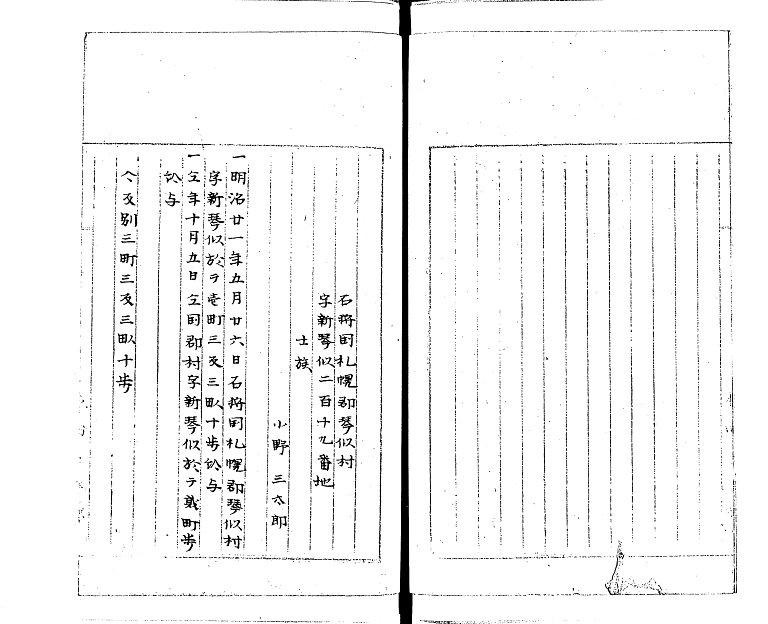 石狩国札幌郡琴似村
字新琴似二百十九番地
士族
小野三太郎
一明治廿一年五月廿六日石狩国札幌郡琴似村
字新琴似於テ壱町三反三畝十歩给与
一仝年十月五日仝国郡村字新琴似於テ貳町歩
给与
仝反別三町三反三畝十歩